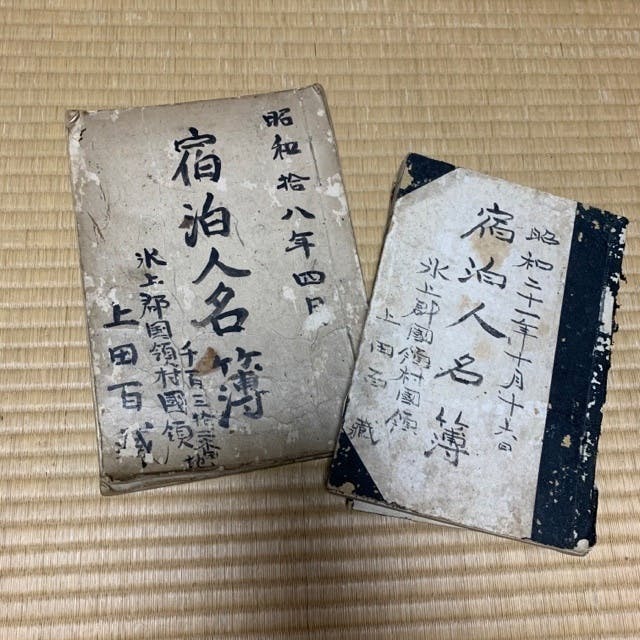 昭和拾八年四月
宿泊人名簿
氷上郡国領村國領
千百三拾三番地
上田百藏
昭和二十一年十月十六日
宿泊人名簿
氷上郡國領村國領
上田百藏